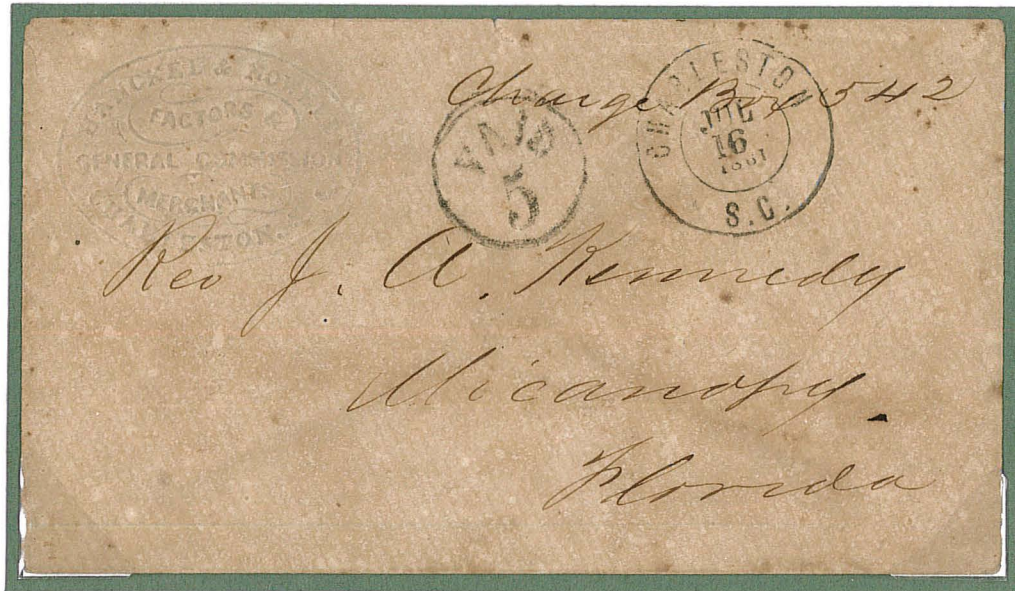 & 
FACTORS
GENERAL COMMISSION
MERCHANTS
CHARLESTON.
Charge Box 542
PAID
5
CHARLESTON
JUL
16
1861
S.C.
Rev J. A. Kennedy
Micanopy
Florida